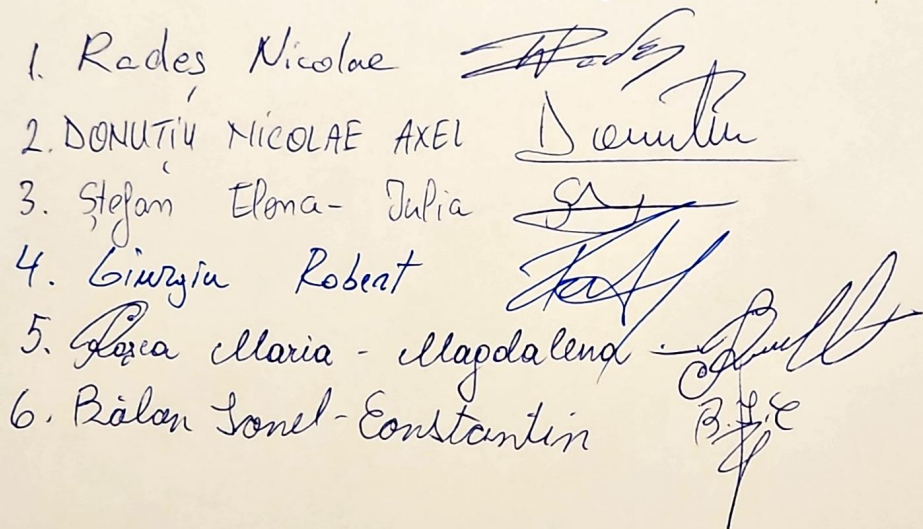 1. Radeș Nicolae Rades
2. DONUȚIU NICOLAE AXEL Donutiu
3. Ștefan Elena- Iulia
4. Giurgiu Robert
5. Roșca Maria - Magdalena -
6. Bălan Ionel-Constantin B.I.C